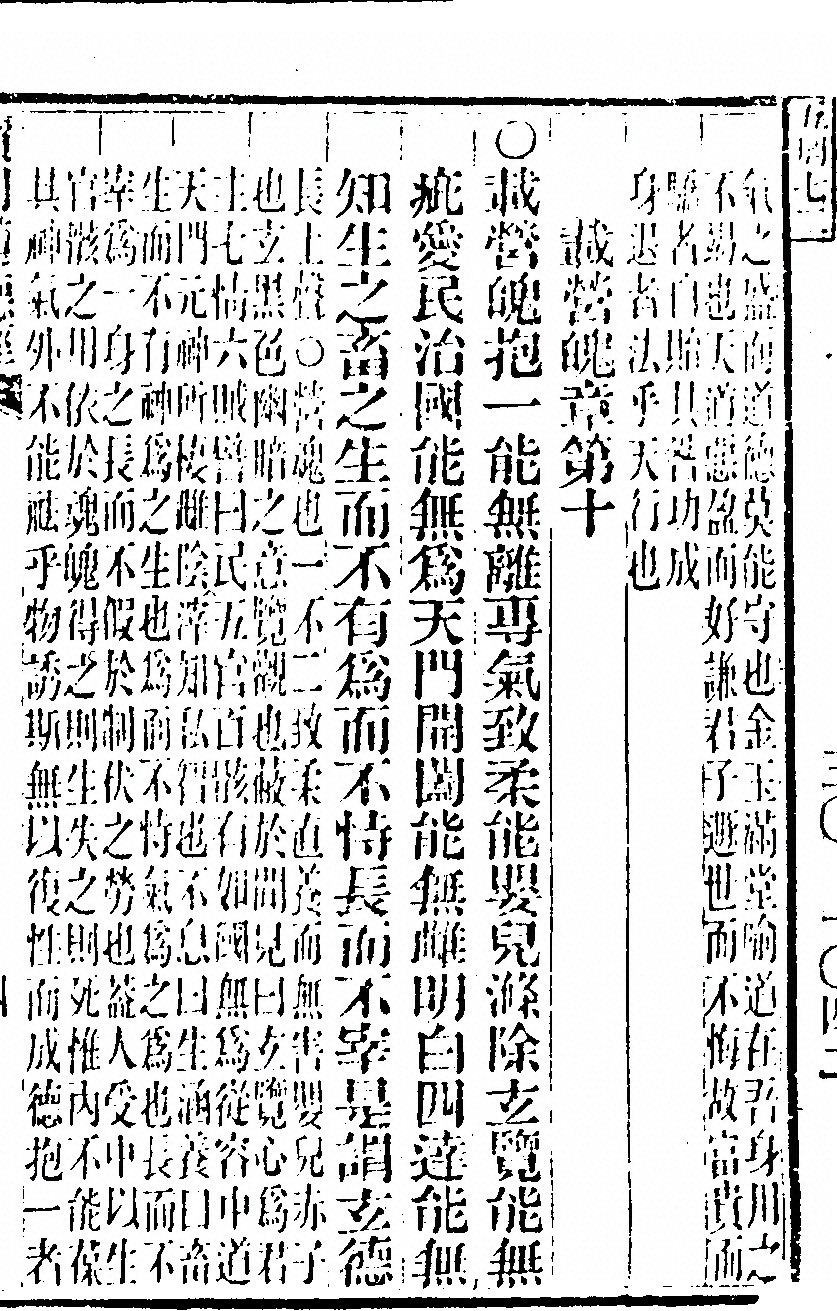 氣之盛而道德莫能守也金玉滿堂喻道在吾身用之
不竭也天道惡盈而好謙君子遯世而不悔故富貴而
驕者自貽其咎功成
身退者法乎天行也
載營魄章第十
○載營魄抱一能無離專氣致柔能嬰兒滌除玄覽能無
疵愛民治國能無爲天門開闔能無雌明白四達能無
知生之畜之生而不有爲而不恃長而不宰是謂玄德
長上聲○營魂也一不二致柔直養而無害嬰兒赤子
也玄黑色幽暗之意覽觀也蔽於聞見曰玄覽心爲君
主七情六賊皆曰民五官百骸有如國無爲從容中道
天門元神所棲雌陰滓知私智也不息曰生涵養曰畜
生而不有神爲之生也爲而不恃氣爲之爲也長而不
宰爲一身之長而不假於制伏之勞也葢人受中以生
官骸之用依於魂魄得之則生失之則死惟內不能葆
其神氣外不能祛乎物誘斯無以復性而成德抱一者